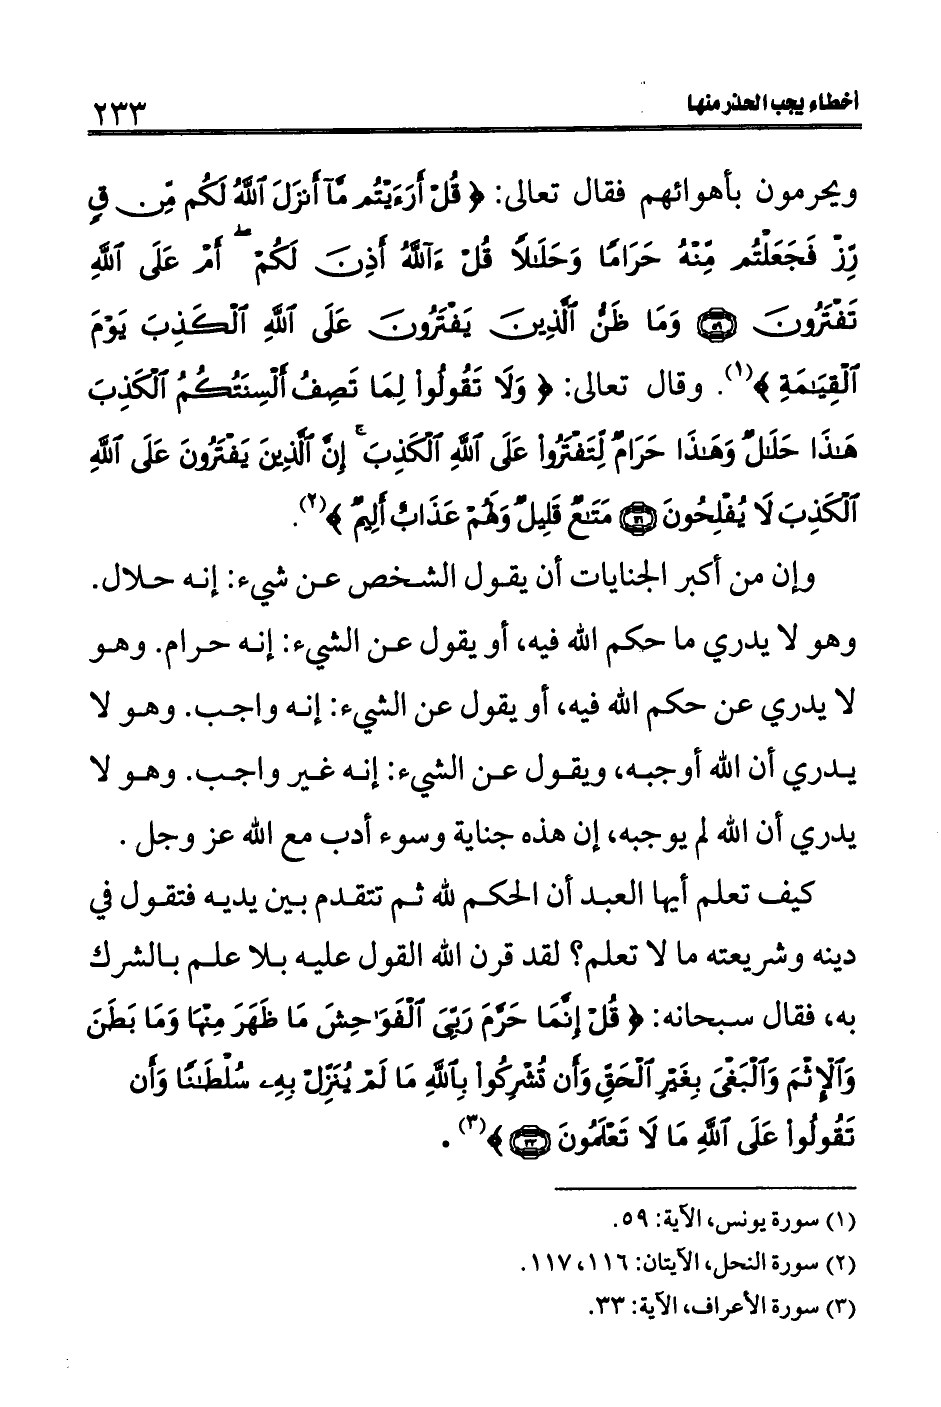 أخطاء يجب الحذر منها ٢٣٣
ويحرمون بأهوائهم فقال تعالى: ﴿ قُلْ أَرَءَيْتُم مَّآ أَنزَلَ ٱللَّهُ لَكُم مِّن
رِّزْقٍ فَجَعَلْتُم مِّنْهُ حَرَامًا وَحَلَٰلًا قُلْ ءَآللَّهُ أَذِنَ لَكُمْ ۖ أَمْ عَلَى ٱللَّهِ
تَفْتَرُونَ ﴿٥٩﴾ وَمَا ظَنُّ ٱلَّذِينَ يَفْتَرُونَ عَلَى ٱللَّهِ ٱلْكَذِبَ يَوْمَ
ٱلْقِيَٰمَةِ ﴾(١). وقال تعالى: ﴿ وَلَا تَقُولُوا۟ لِمَا تَصِفُ أَلْسِنَتُكُمُ ٱلْكَذِبَ
هَٰذَا حَلَٰلٌ وَهَٰذَا حَرَامٌ لِّتَفْتَرُوا۟ عَلَى ٱللَّهِ ٱلْكَذِبَ ۚ إِنَّ ٱلَّذِينَ يَفْتَرُونَ عَلَى ٱللَّهِ
ٱلْكَذِبَ لَا يُفْلِحُونَ ﴿١١٦﴾ مَتَٰعٌ قَلِيلٌ وَلَهُمْ عَذَابٌ أَلِيمٌ ﴾(٢).
وإن من أكبر الجنايات أن يقول الشخص عن شيء: إنه حلال.
وهو لا يدري ما حكم الله فيه، أو يقول عن الشيء: إنه حرام. وهو
لا يدري عن حكم الله فيه، أو يقول عن الشيء: إنه واجب. وهو لا
يدري أن الله أوجبه، ويقول عن الشيء: إنه غير واجب. وهو لا
يدري أن الله لم يوجبه، إن هذه جناية وسوء أدب مع الله عز وجل .
كيف تعلم أيها العبد أن الحكم لله ثم تتقدم بين يديه فتقول في
دينه وشريعته ما لا تعلم؟ لقد قرن الله القول عليه بلا علم بالشرك
به، فقال سبحانه: ﴿ قُلْ إِنَّمَا حَرَّمَ رَبِّىَ ٱلْفَوَٰحِشَ مَا ظَهَرَ مِنْهَا وَمَا بَطَنَ
وَٱلْإِثْمَ وَٱلْبَغْىَ بِغَيْرِ ٱلْحَقِّ وَأَن تُشْرِكُوا۟ بِٱللَّهِ مَا لَمْ يُنَزِّلْ بِهِۦ سُلْطَٰنًا وَأَن
تَقُولُوا۟ عَلَى ٱللَّهِ مَا لَا تَعْلَمُونَ ﴿٣٣﴾ ﴾(٣) .
(١) سورة يونس، الآية: ٥٩.
(٢) سورة النحل، الآيتان: ١١٦، ١١٧.
(٣) سورة الأعراف، الآية: ٣٣.